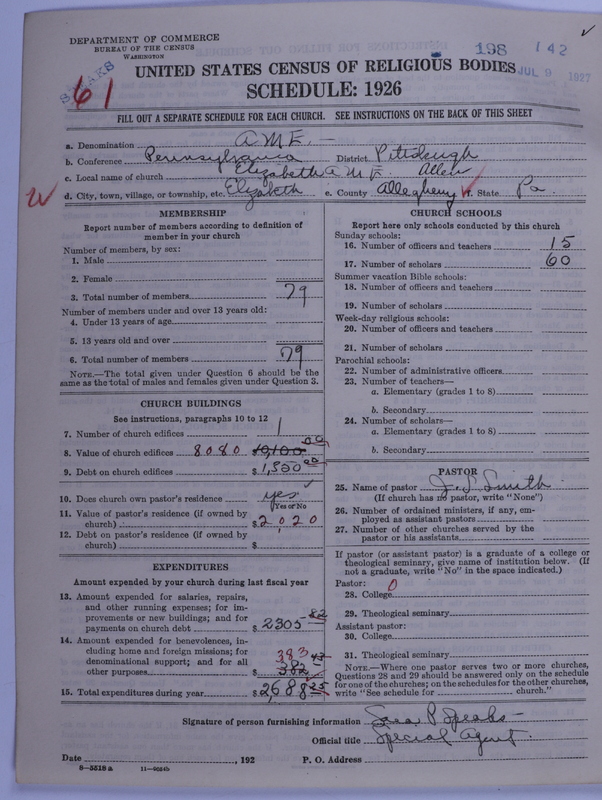 DEPARTMENT OF COMMERCE
BUREAU OF THE CENSUS
WASHINGTON
198 142
JUL 9 1927
61
UNITED STATES CENSUS OF RELIGIOUS BODIES
SCHEDULE: 1926
FILL OUT A SEPARATE SCHEDULE FOR EACH CHURCH. SEE INSTRUCTIONS ON THE BACK OF THIS SHEET
a. Denomination A M E. -
b. Conference Pennsylvania District Pittsburgh
c. Local name of church Elizabeth A M E. Allen
d. City, town, village, or township, etc. Elizabeth e. County Allegheny f. State Pa
MEMBERSHIP
Report number of members according to definition of member in your church
Number of members, by sex:
1. Male
2. Female
3. Total number of members 79
Number of members under and over 13 years old:
4. Under 13 years of age
5. 13 years old and over
6. Total number of members 79
NOTE.—The total given under Question 6 should be the same as the total of males and females given under Question 3.
CHURCH BUILDINGS
See instructions, paragraphs 10 to 12
7. Number of church edifices 1
8. Value of church edifices 8080 $ 10,100 00
9. Debt on church edifices $ 1,350 00
10. Does church own pastor's residence yes
Yes or No
11. Value of pastor's residence (if owned by church) $ 2,020
12. Debt on pastor's residence (if owned by church) $
EXPENDITURES
Amount expended by your church during last fiscal year
13. Amount expended for salaries, repairs, and other running expenses; for improvements or new buildings; and for payments on church debt $ 2305 82
14. Amount expended for benevolences, including home and foreign missions; for denominational support; and for all other purposes $ 383 382 43
15. Total expenditures during year $ 2,688 25
CHURCH SCHOOLS
Report here only schools conducted by this church
Sunday schools:
16. Number of officers and teachers 15
17. Number of scholars 60
Summer vacation Bible schools:
18. Number of officers and teachers
19. Number of scholars
Week-day religious schools:
20. Number of officers and teachers
21. Number of scholars
Parochial schools:
22. Number of administrative officers
23. Number of teachers—
a. Elementary (grades 1 to 8)
b. Secondary
24. Number of scholars—
a. Elementary (grades 1 to 8)
b. Secondary
PASTOR
25. Name of pastor J. S. Smith
(If church has no pastor, write "None")
26. Number of ordained ministers, if any, employed as assistant pastors
27. Number of other churches served by the pastor or his assistants
If pastor (or assistant pastor) is a graduate of a college or theological seminary, give name of institution below. (If not a graduate, write "No" in the space indicated.)
Pastor: 0
28. College
29. Theological seminary
Assistant pastor:
30. College
31. Theological seminary
NOTE.—Where one pastor serves two or more churches, Questions 28 and 29 should be answered only on the schedule for one of the churches; on the schedules for the other churches, write "See schedule for church."
Signature of person furnishing information P Speaks
Official title Special Agent
Date , 192 P. O. Address
8-5518 a 11-9054b